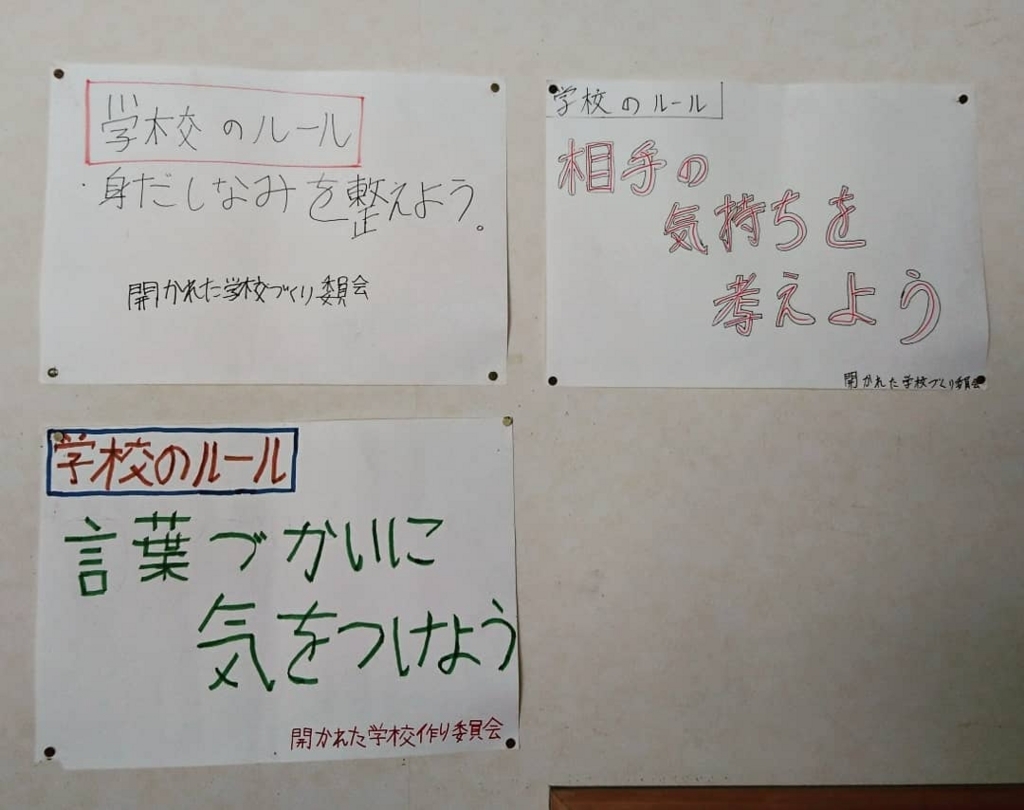 学校のルール
身だしなみを整えよう。
開かれた学校づくり委員会
学校のルール
相手の
気持ちを
考えよう
開かれた学校づくり委員会
学校のルール
言葉づかいに
気をつけよう
開かれた学校作り委員会